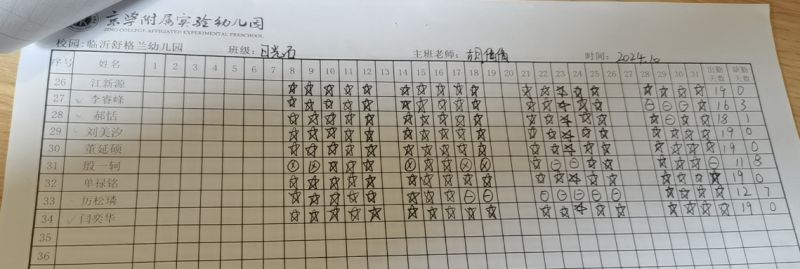 京学附属实验幼儿园
JING COLLEGE-AFFILIATED EXPERIMENTAL PRESCHOOL
校园:临沂舒格兰幼儿园 班级:月光石 主班老师: 胡倩倩 时间: 2024.10
序号 姓名 1 2 3 4 5 6 7 8 9 10 11 12 13 14 15 16 17 18 19 20 21 22 23 24 25 26 27 28 29 30 31 出勤天数 缺勤天数
26 江新源 ☆ ☆ ☆ ☆ ☆ ☆ ☆ ☆ ☆ ☆ ☆ ☆ ☆ ☆ ☆ ☆ ☆ ☆ ☆ 19 0
27 李睿峰 ☆ ☆ ☆ ☆ ☆ ☆ ☆ ☆ ☆ ☆ ☆ ☆ ☆ ☆ ☆ ⊖ ⊖ ⊖ ☆ 16 3
28 郝恬 18 1
29 刘美汐 19 0
30 董延硕 19 0
31 殷一轲 11 8
32 单禄铭 19 0
33 厉松瑀 12 7
34 闫奕华 19 0
35
36